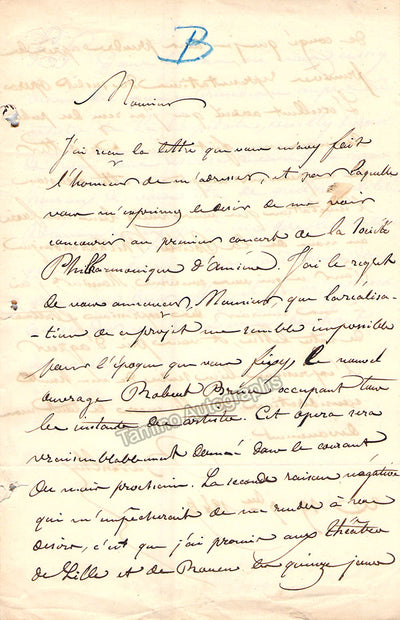 B
Monsieur
J'ai reçu la lettre que vous m'avez fait
l'honneur de m'adresser, et par laquelle
vous m'exprimez le désir de me voir
concourir au premier concert de la Société
Philharmonique d'Amiens. J'ai le regret
de vous annoncer, Monsieur que la réalisa-
-tion de ce projet me semble impossible
pour l'époque que vous fixez, le nouvel
ouvrage Robert Bruce occupant tous
les instants des artistes. Cet opéra sera
vraisemblablement donné dans le courant
du mois prochain. La seconde raison négative
qui m'empêcherait de me rendre à votre
désir, c'est que j'ai promis aux théâtres
de Lille et de Rouen les quinze jours
Tamino Autographs